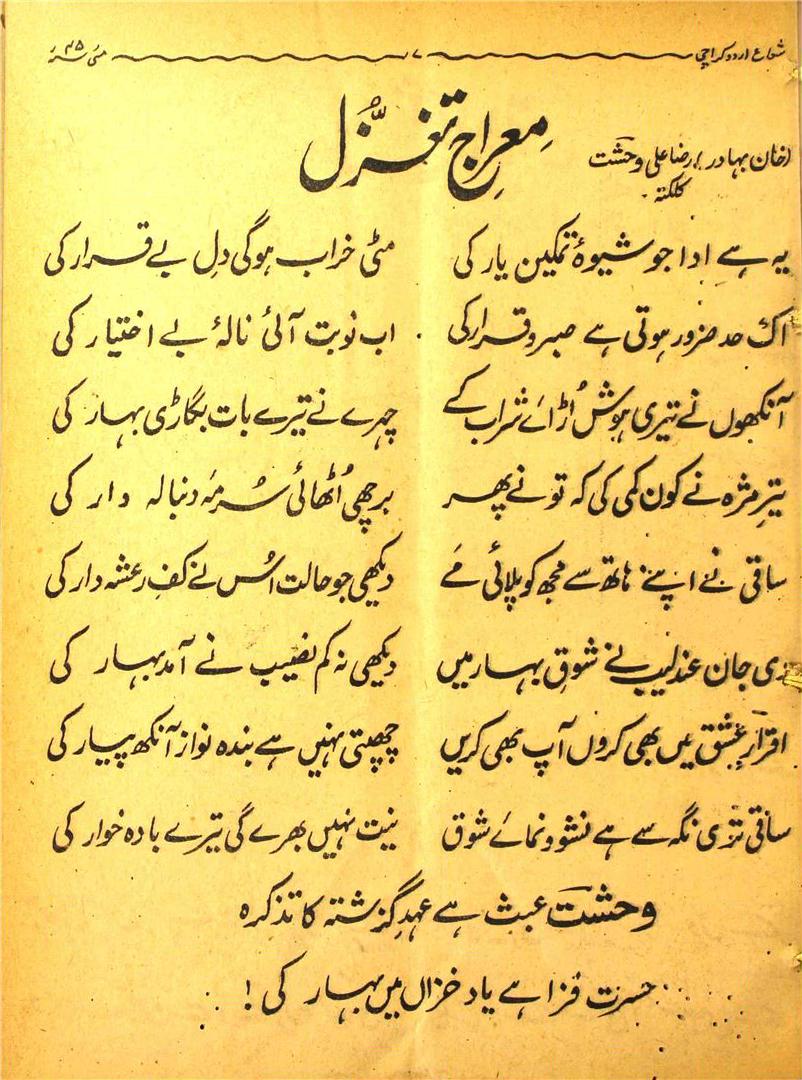 شعاع اردو کراچی ۷ مئی ۴۵ء
معراجِ تغزُّل
(خان بہادر) رضا علی وحشت
کلکتہ
یہ ہے ادا جو شیوۂ تمکین یار کی مٹی خراب ہوگی دلِ بے قرار کی
اک حد ضرور ہوتی ہے صبر و قرار کی اب نوبت آئی نالۂ بے اختیار کی
آنکھوں نے تیری ہوش اُڑائے شراب کے چہرے نے تیرے بات بگاڑی بہار کی
تیرِ مژہ نے کون کمی کی کہ تو نے پھر برچھی اُٹھائی سُرمہ دنبالہ دار کی
ساقی نے اپنے ہاتھ سے مجھ کو پلائی مے دیکھی جو حالت اُس نے کفِ رعشہ دار کی
دی جان عندلیب نے شوقِ بہار میں دیکھی نہ کم نصیب نے آمد بہار کی
اقرارِ عشق میں بھی کروں آپ بھی کریں چھپتی نہیں ہے بندہ نواز آنکھ پیار کی
ساقی تری نگہ سے ہے نشوونمائے شوق نیت نہیں بھرے گی تیرے بادہ خوار کی
وحشت عبث ہے عہدِ گزشتہ کا تذکرہ
حسرت فزا ہے یاد خزاں میں بہار کی !